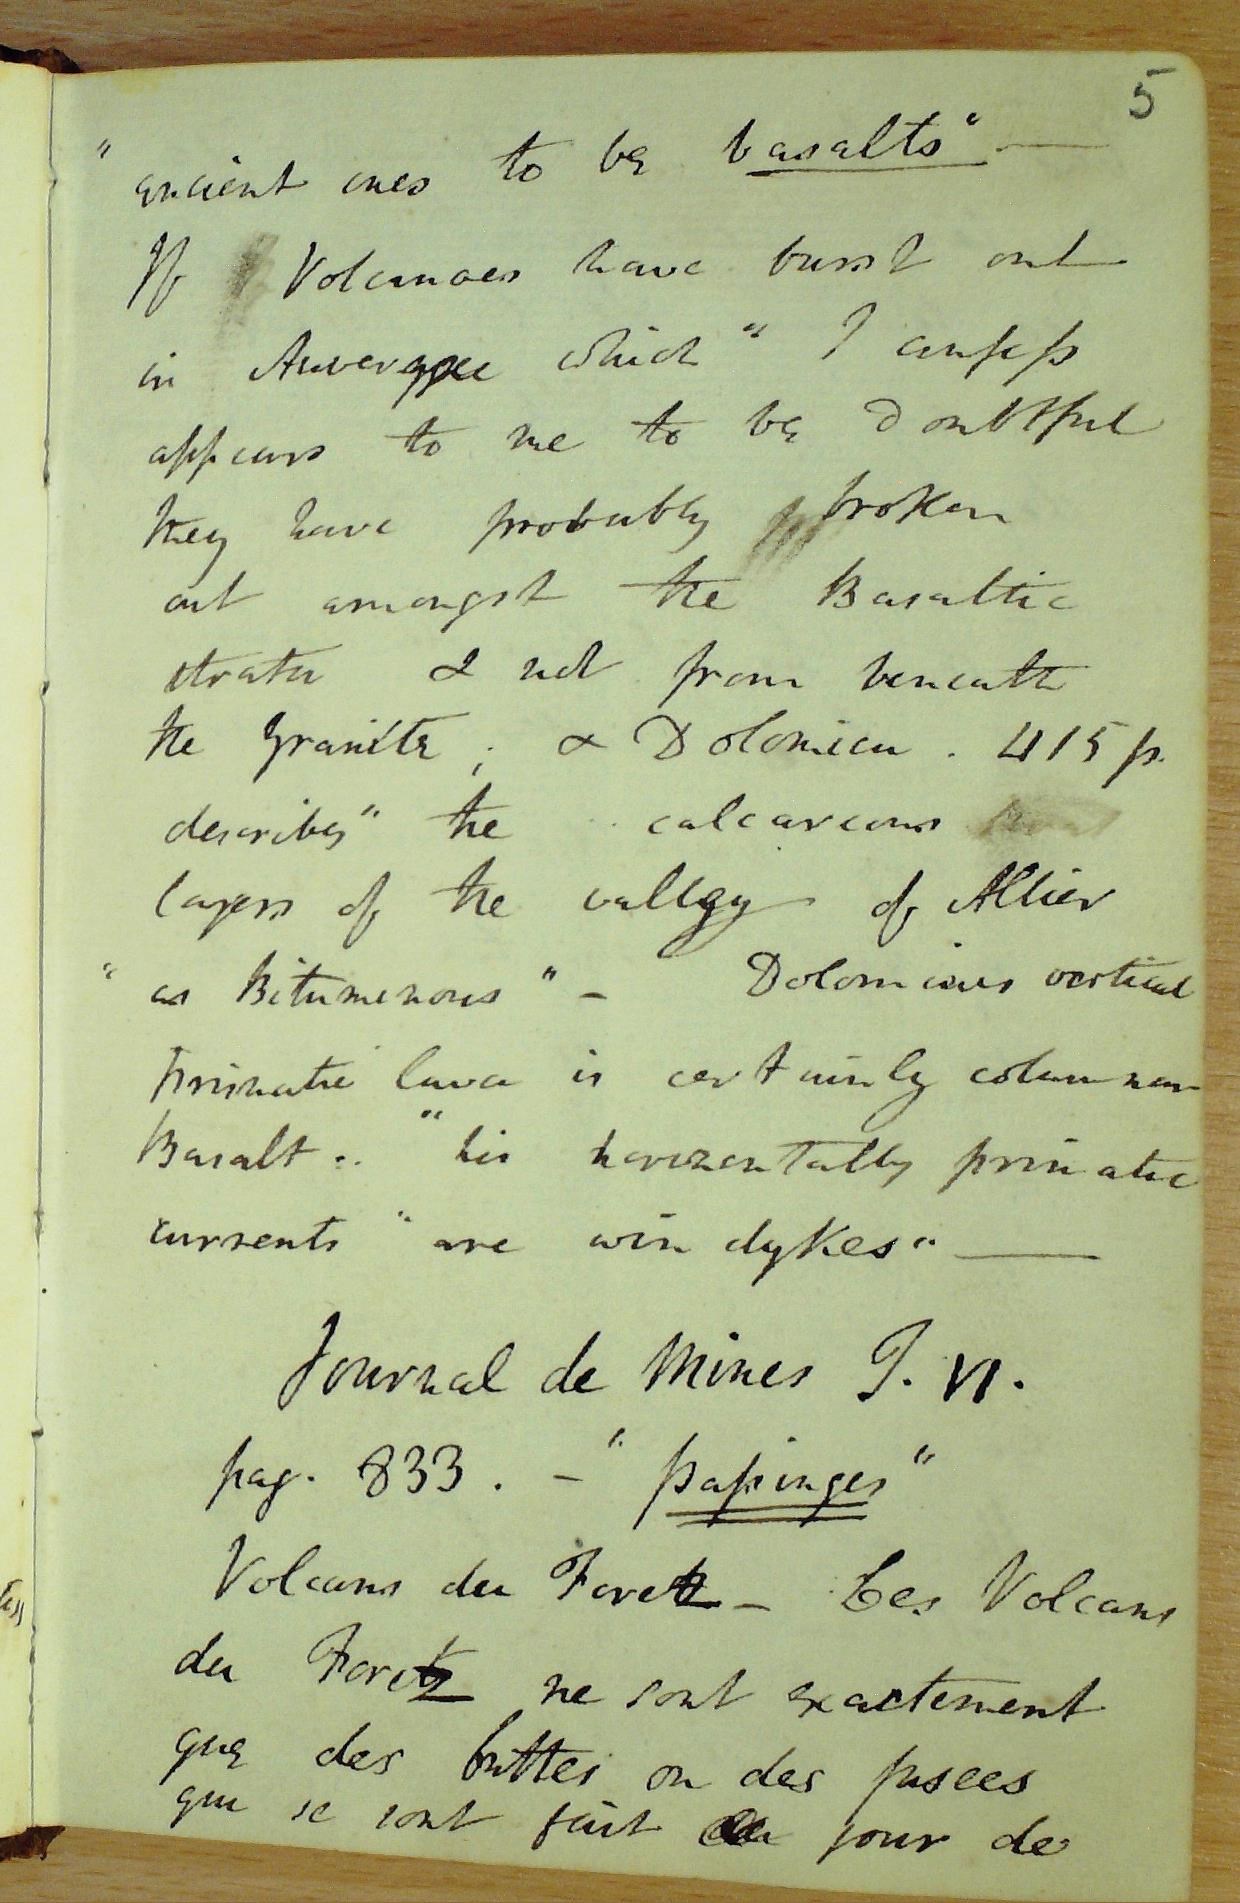 5
" ancient ones to be basalts" —
If Volcanoes have burst out
in Auvergne which " I confess
appears to me to be doubtful
they have probably broken
out amongst the Basaltic
strata & not from beneath
the granite ; & Dolomieu . 415 p.
describes" the calcareous
layers of the valley of Allier
" as Bitumenous " – Dolomieus vertical
prismatic lava is certainly columnar
Basalt .. " his horizontally prismatic
currents " are win dykes" —
Journal de Mines T. VI.
pag. 833 . – " passinges "
Volcans du Foretz – Les Volcans
du Foretz ne sont exactement
que des buttes ou des fusees
qui se sont fait jour de